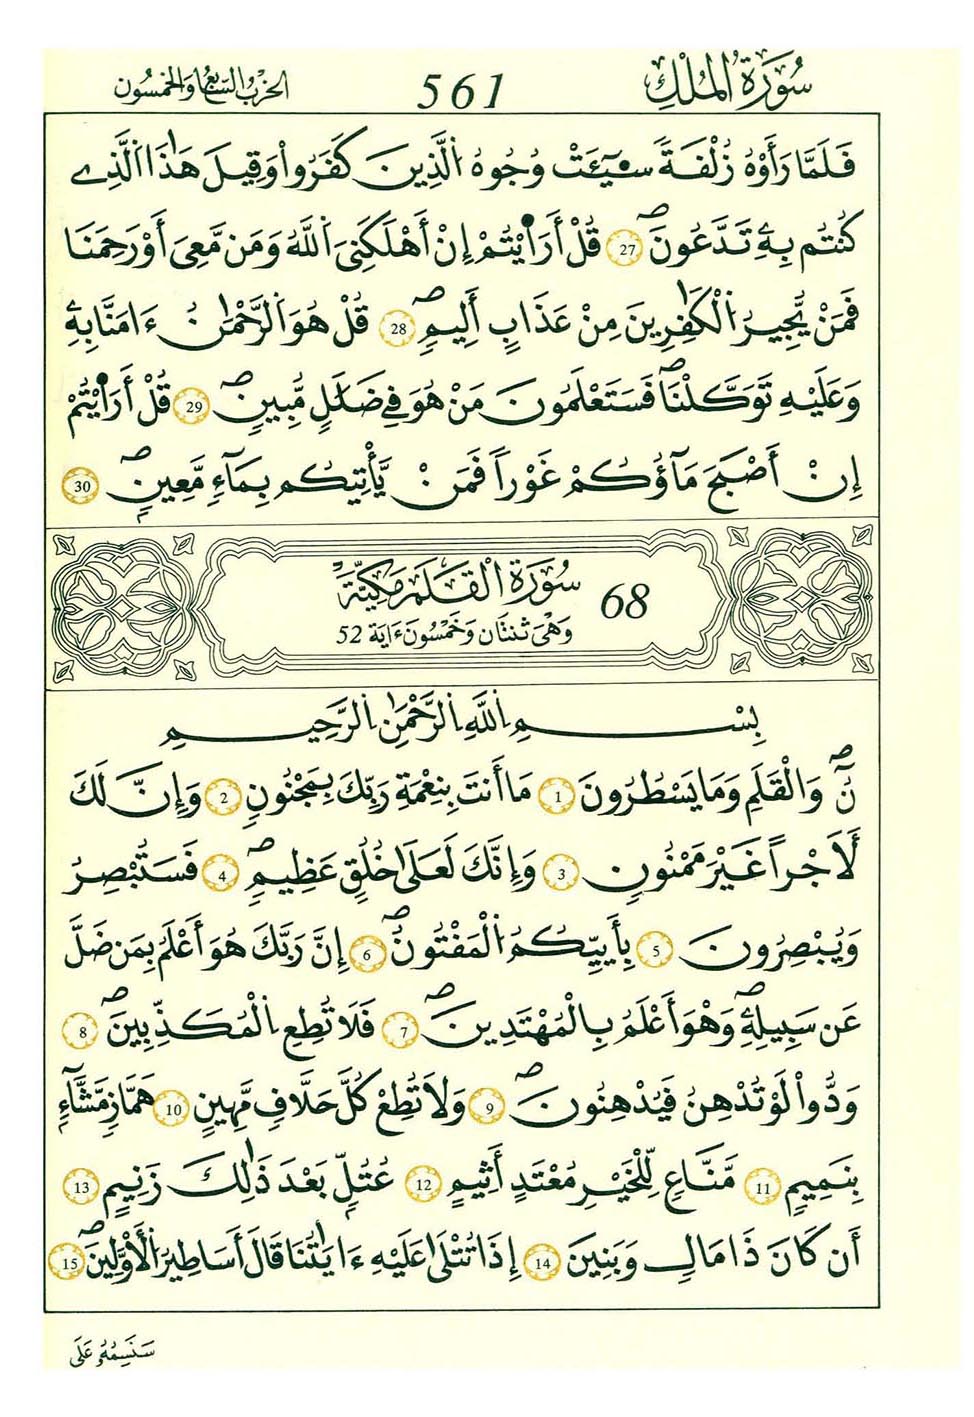 سُورَةُ الْمُلْكِ 561 الحِزْبُ السَّابِعُ وَالْخَمْسُون
فَلَمَّا رَأَوْهُ زُلْفَةً سِيٓـَٔتْ وُجُوهُ اُ۬لذِينَ كَفَرُواْ وَقِيلَ هَٰذَا اَ۬لذِے
كُنتُم بِهِۦ تَدَّعُونَۖ 27 قُلَ اَرَٰٓيْتُمُۥٓ إِنْ أَهْلَكَنِيَ اَ۬للَّهُ وَمَن مَّعِيَ أَوْ رَحِمَنَا
فَمَنْ يُّجِيرُ اُ۬لْكَٰفِرِينَ مِنْ عَذَابٍ أَلِيمٖۖ 28 قُلْ هُوَ اَ۬لرَّحْمَٰنُ ءَامَنَّا بِهِۦ
وَعَلَيْهِ تَوَكَّلْنَاۖ فَسَتَعْلَمُونَ مَنْ هُوَ فِے ضَلَٰلٖ مُّبِينٖۖ 29 قُلْ أَرَٰيْتُمْ
إِنْ أَصْبَحَ مَآؤُكُمْ غَوْراٗ فَمَنْ يَّأْتِيكُم بِمَآءٖ مَّعِينٖۖ 30
سُورَةُ الْقَلَمِ مَكِّيَّةٌ 68
وَهْيَ ثِنْتَانِ وَخَمْسُونَ ءَايَة 52
بِسْمِ اِ۬للَّهِ اِ۬لرَّحْمَٰنِ اِ۬لرَّحِيمِ
نٓۖ وَالْقَلَمِ وَمَا يَسْطُرُونَ 1 مَا أَنتَ بِنِعْمَةِ رَبِّكَ بِمَجْنُونٖ 2 وَإِنَّ لَكَ
لَأَجْراً غَيْرَ مَمْنُونٖ 3 وَإِنَّكَ لَعَلَىٰ خُلُقٍ عَظِيمٖۖ 4 فَسَتُبْصِرُ
وَيُبْصِرُونَ 5 بِأَييِّكُمُ اُ۬لْمَفْتُونُۖ 6 إِنَّ رَبَّكَ هُوَ أَعْلَمُ بِمَن ضَلَّ
عَن سَبِيلِهِۦۖ وَهْوَ أَعْلَمُ بِالْمُهْتَدِينَۖ 7 فَلَا تُطِعِ اِ۬لْمُكَذِّبِينَۖ 8
وَدُّواْ لَوْ تُدْهِنُ فَيُدْهِنُونَۖ 9 وَلَا تُطِعْ كُلَّ حَلَّافٖ مَّهِينٍ 10 هَمَّازٖ مَّشَّآءِۢ
بِنَمِيمٖ 11 مَّنَّاعٖ لِّلْخَيْرِ مُعْتَدٍ أَثِيمٍ 12 عُتُلِّۢ بَعْدَ ذَٰلِكَ زَنِيمٍ 13
أَن كَانَ ذَا مَالٖ وَبَنِينَ 14 إِذَا تُتْلَىٰ عَلَيْهِ ءَايَٰتُنَا قَالَ أَسَاطِيرُ اُ۬لْأَوَّلِينَۖ 15
سَنَسِمُهُۥ عَلَى